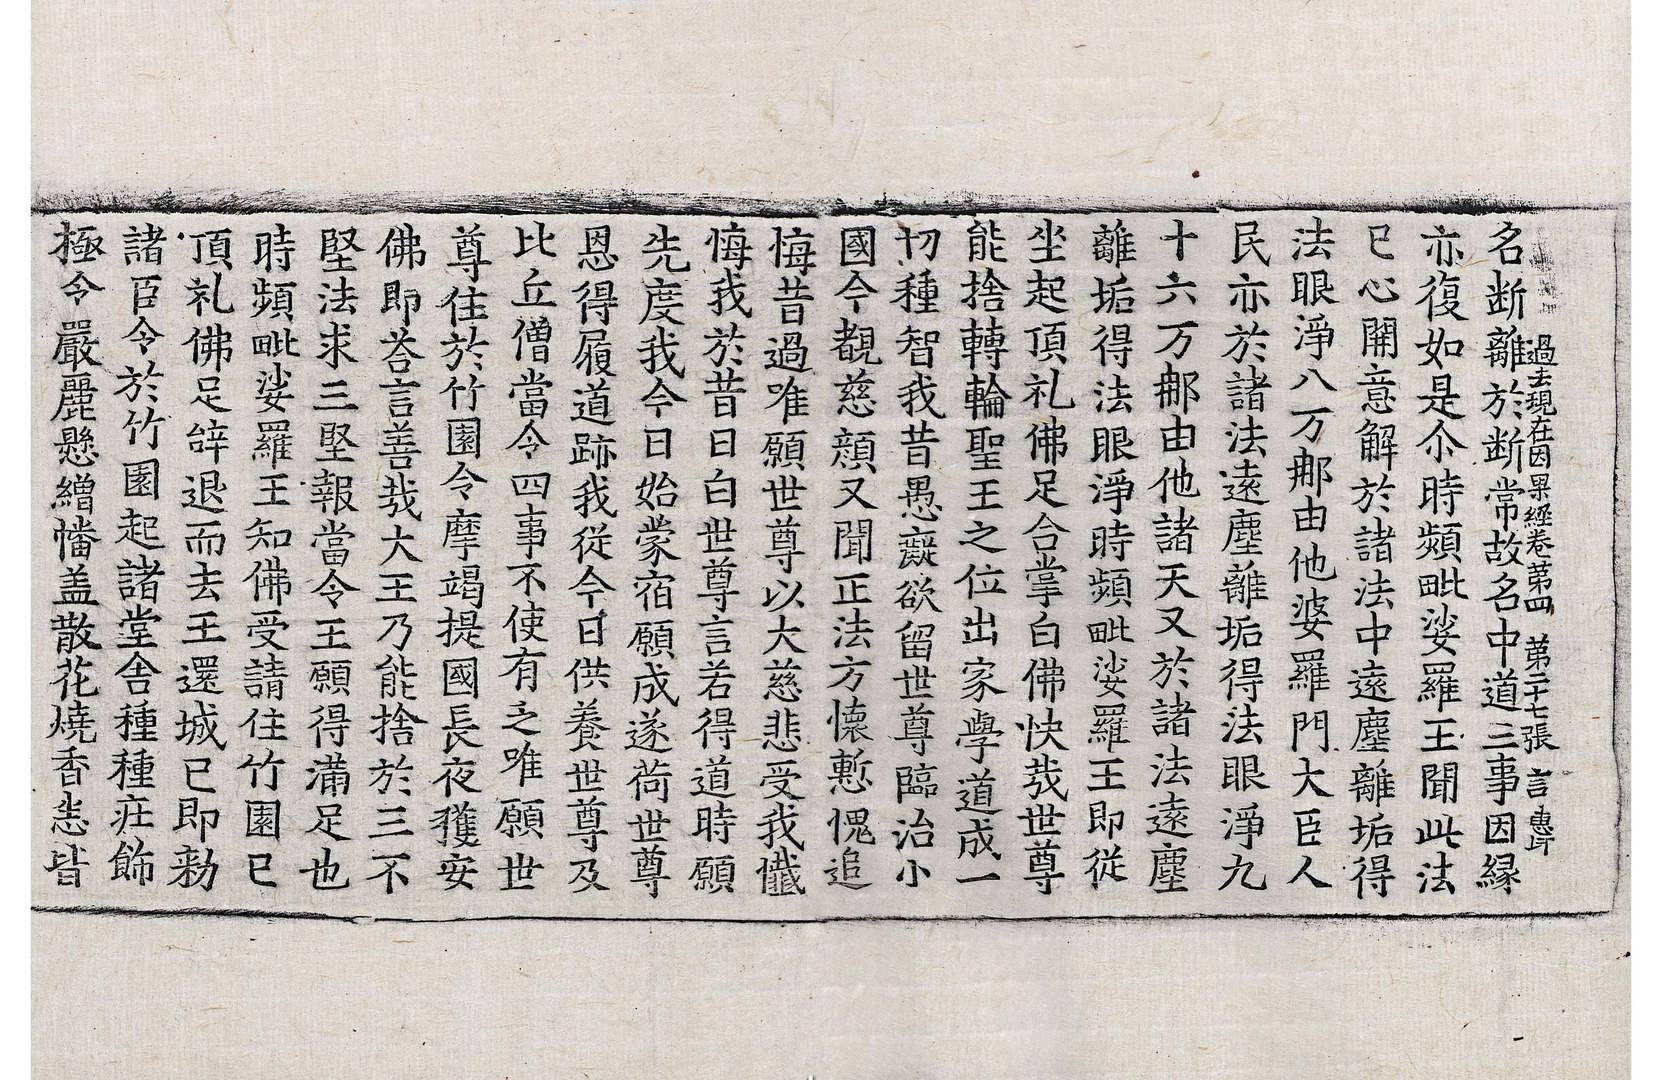 過去現在因果経卷第四 第二十七張 言 惠耳
名断離於断常故名中道三事因縁
亦復如是尒時頻毗娑羅王聞此法
已心開意解於諸法中遠塵離垢得
法眼淨八万𨙻由他婆羅門大臣人
民亦於諸法遠塵離垢得法眼淨九
十六万𨙻由他諸天又於諸法遠塵
離垢得法眼淨時頻毗娑羅王即從
坐起頂礼佛足合掌白佛快㢤世尊
能捨轉輪聖王之位出家學道成一
切種智我昔愚癡欲留世尊臨治小
國今覩慈顔又聞正法方懷慙愧追
悔昔過唯願世尊以大慈悲受我懺
悔我於昔日白世尊言若得道時願
先度我今日始蒙宿願成遂荷世尊
恩得履道跡我從今日供養世尊及
比丘僧當令四事不使有乏唯願世
尊住於竹園令摩竭提國長夜獲安
佛即荅言善㢤大王乃能捨於三不
堅法求三堅報當令王願得滿足也
時頻毗娑羅王知佛受請住竹園已
頂礼佛足辝退而去王還城已即勑
諸臣令於竹園起諸堂舎種種疘飾
極令嚴麗懸繒幡盖散花燒香悉皆